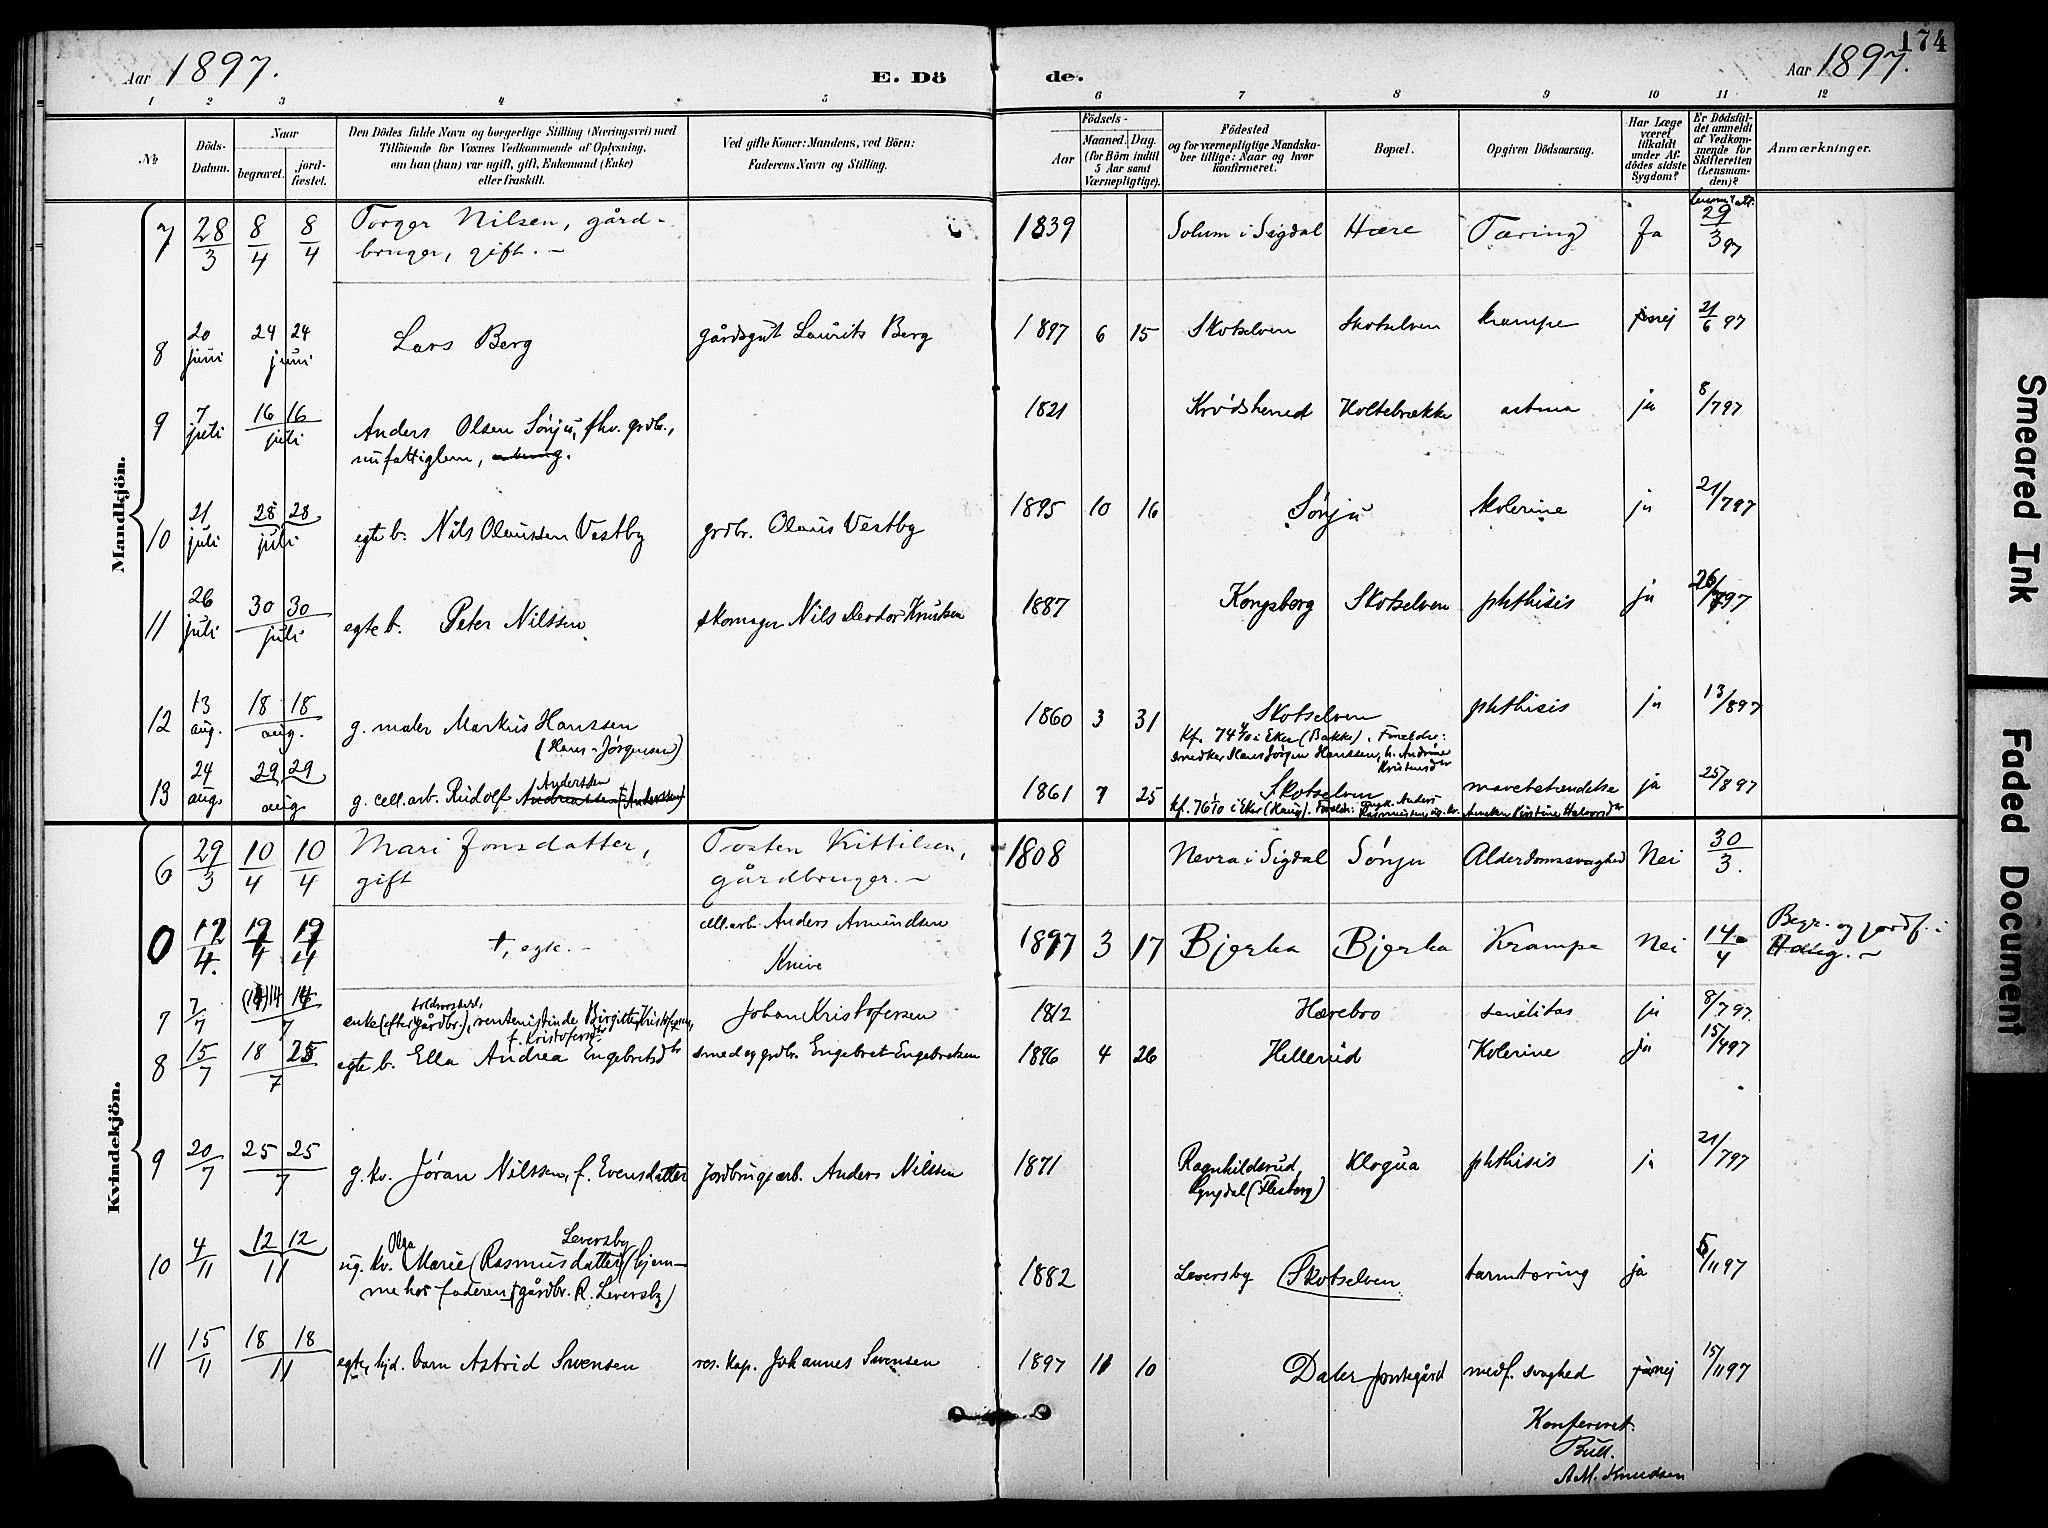 174
Aar 1897.
E. Dö
de.
Aar 1897.
1 2 3 4 5 6 7 8 9 10 11 12
No
Döds-
Datum.
Naar
begravet.
jord-
fæstet.
Den Dödes fulde Navn og borgerlige Stilling (Næringsvei) med
Tilföiende för Voxnes Vedkommende af Oplysning,
om han (hun) var ugift, gift, Enkemand (Enke)
eller fraskilt.
Ved gifte Koner: Mandens, ved Börn:
Faderens Navn og Stilling.
Födsels-
Aar
Maaned. Dag.
(for Börn indtil
5 Aar samt
Værnepligtige).
Födested
og for værnepligtige Mandska-
ber tillige: Naar og hvor
konfirmeret.
Bopæl.
Opgiven Dödsaarsag.
Har Læge
været
tilkaldt
under Af-
dödes sidste
Sygdom?
Er Dödsfal-
det anmeldt
af Vedkom-
mende for
Skifteretten
(Lensman-
den)?
Anmærkninger.
Mandkjön.
7 28/3 8/4 8/4 Torger Nilsen, gård- 1839 Solum i Sigdal Hære Tæring Ja 29/3 97
bruger, gift. –
8 20 juni 24 24 juni Lars Berg gårdsgut Laurits Berg 1897 6 15 Skotselven Skotselven krampe nej 21/6 97
9 7 juli 16 16 juli Anders Olsen Sønju, fhv. grdbr., 1821 Krødshered Holtebrække astma ja 8/7 97
nu fattiglem,
10 21 juli 28 28 juli egte b. Nils Olaussen Vestby grdbr. Olaus Vestby 1895 10 16 Sønju kolerine ja 21/7 97
11 26 juli 30 30 juli egte b. Peter Nilssen skomager Nils Knutsen 1887 Kongsberg Skotselven phthisis ja 26/7 97
12 13 aug. 18 18 aug. g. maler Markus Hanssen 1860 3 31 Skotselven phthisis ja 13/8 97
(Hans-Jørgensen) kf. 74 i Eker (Bakke). Forældre:
smedker Hans Jørgen Hanssen, h. Andrine
Kristensdtr
13 24 aug. 29 29 aug. g. cell.arb. Rudolf Anderssen 1861 7 25 Skotselven mavebetændelse ja 25/8 97
kf. 76 i Eker (Haug). Foreldr: Anders
Rasmussen og
Kvindekjön.
6 29/3 10/4 10/4 Mari Jonsdatter, Tosten Kittilsen, 1808 Nevra i Sigdal Sønju Alderdomssvaghed Nei 30/3.
gift gårdbruger. –
0 12/4. 19/4 19/4 +, egte. – cell.arb. Anders Amundsen 1897 3 17 Bjerka Bjerka Krampe Nei 14/4 Begr. og jordf. i
Knive Haug. –
7 7/7 14 14/7 enke (efter gårdbr.), Birgitte Kristofersen, Johan Kristofersen 1812 Hærebro senilitas ja 8/7 97
f. Kristofersdtr
8 15/7 18 25/7 egte b. Ella Andrea Engebretsdtr smed og grdbr. Engebret Engebretsen 1896 4 26 Hellerud Kolerine ja 15/7 97
9 20/7 25 25/7 g. kv. Jøran Nilssen, f. Evensdatter jordbrugsarb. Anders Nilssen 1871 Ragnhildsrud, Klogua phthisis ja 21/7 97
Lyngdal (Flesberg)
10 4/11 12 12/11 ug. kv. Olga Marie (Rasmusdatter) Leversby (hjem- 1882 Leversby (Skotselven tarmtæring ja 5/11 97
me hos faderen gårdbr. R. Leversby)
11 15/11 18 18/11 egte, hjd. barn Astrid Swensen res. kap. Johannes Swensen 1897 11 10 Daler prestegård medf. svaghed nej 15/11 97
Konfereret.
Bull.
A.M. Knudsen
Smeared Ink
Faded Document